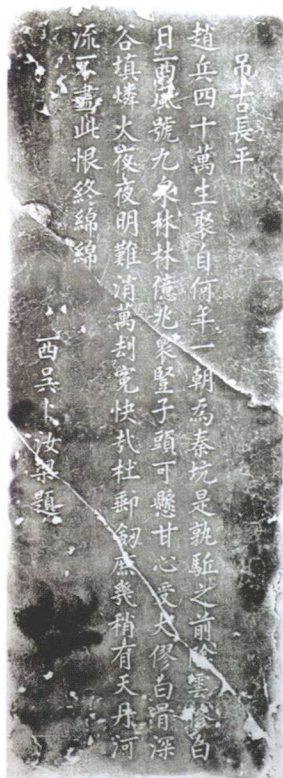 吊古長平
趙兵四十萬生聚自何年一朝為秦坑是孰駈之前陰雲慘白
日西風號九泉林林億兆衆豎子頭可懸甘心受大僇白骨深
谷填燐火夜夜明難消萬刦寃快哉杜郵劔庶幾稍有天丹河
流不盡此恨終綿綿
西吳卜汝梁題